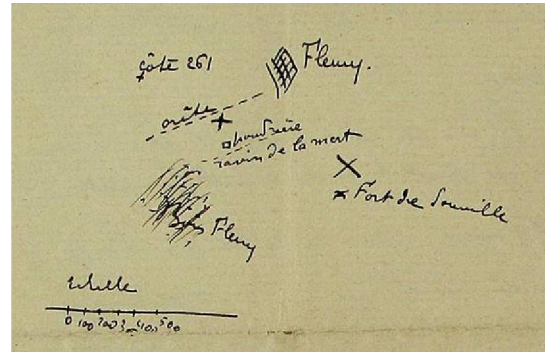 côte 261
Fleury.
crête
poudrière
ravin de la mort
Fort de Souville
Bois Fleury
Echelle
0 100 200 3 400 500